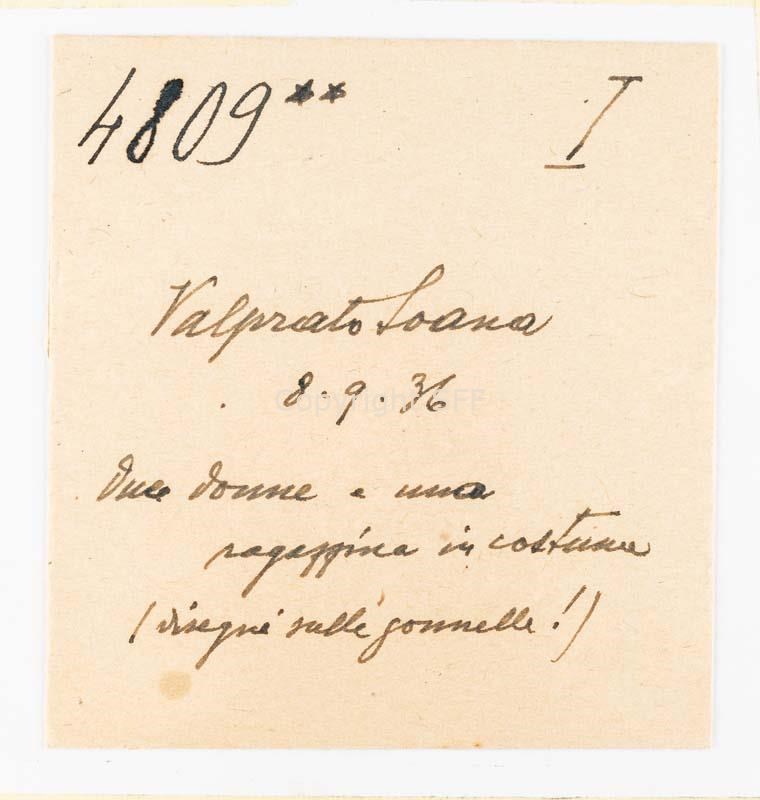 4809** I
Valprato Soana
8.9.36
due donne e una
ragazzina in costume
(disegni sulle gonnelle!)